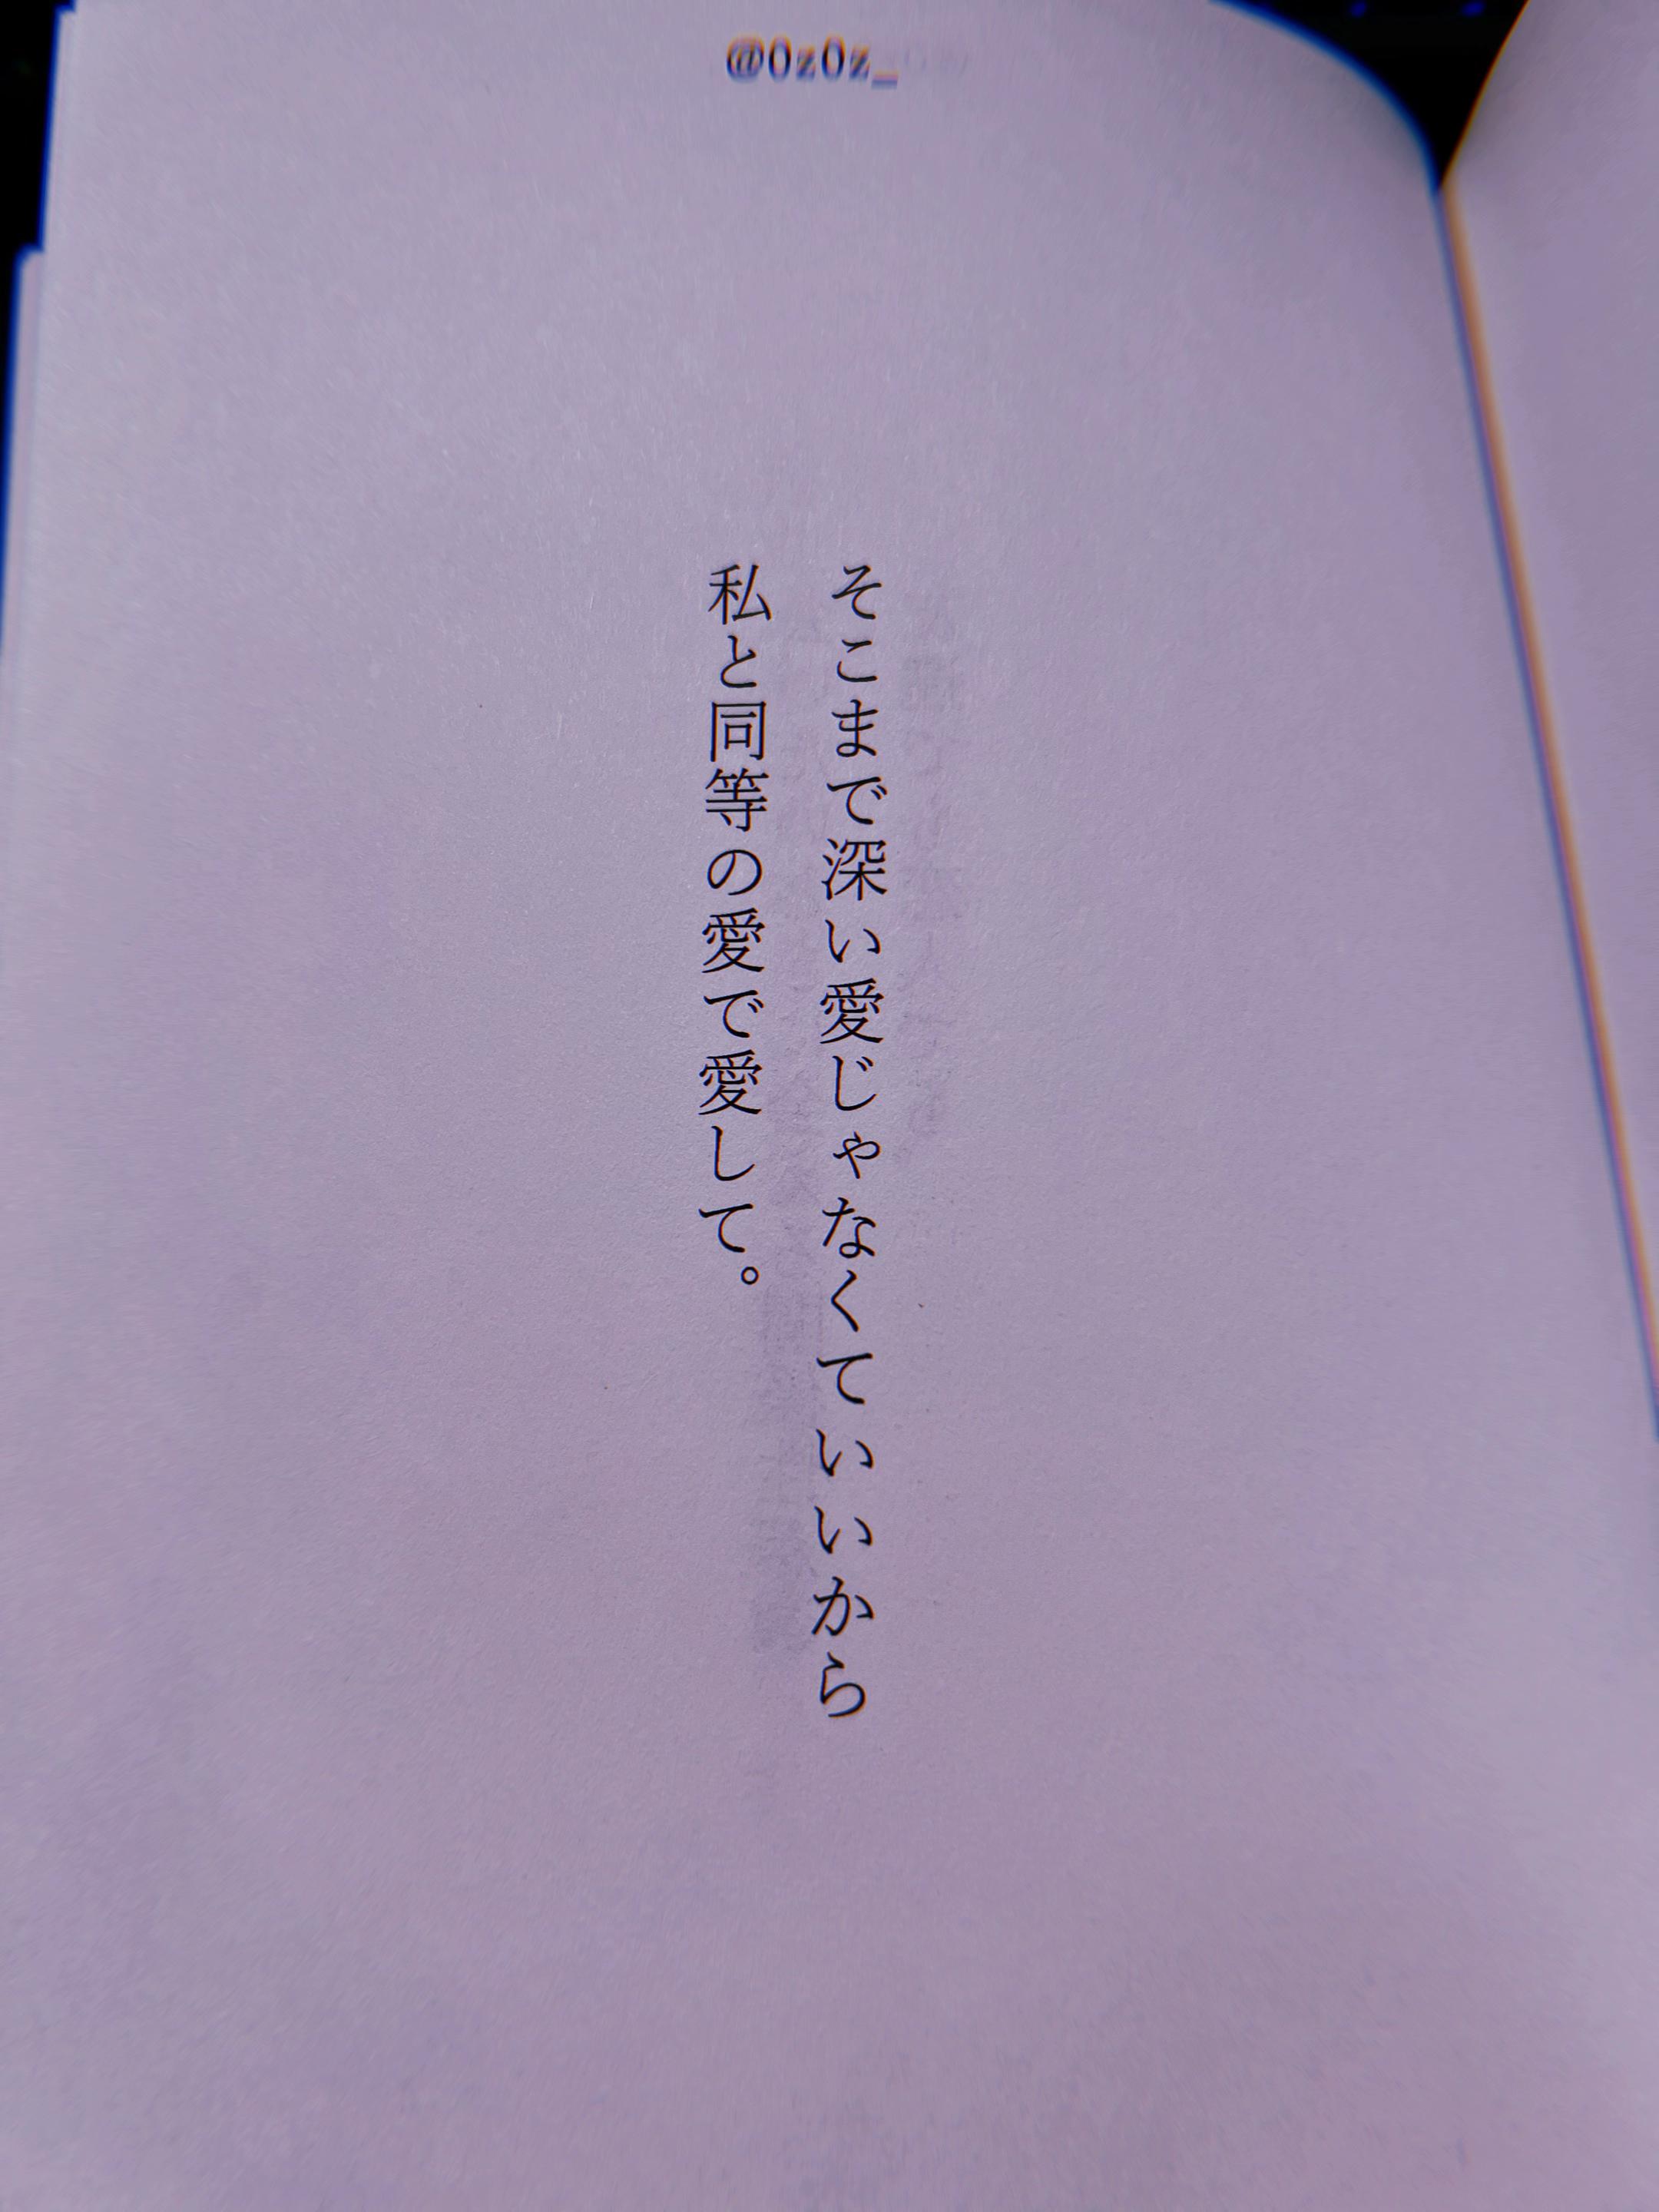 @0z0z_
そこまで深い愛じゃなくていいから
私と同等の愛で愛して。